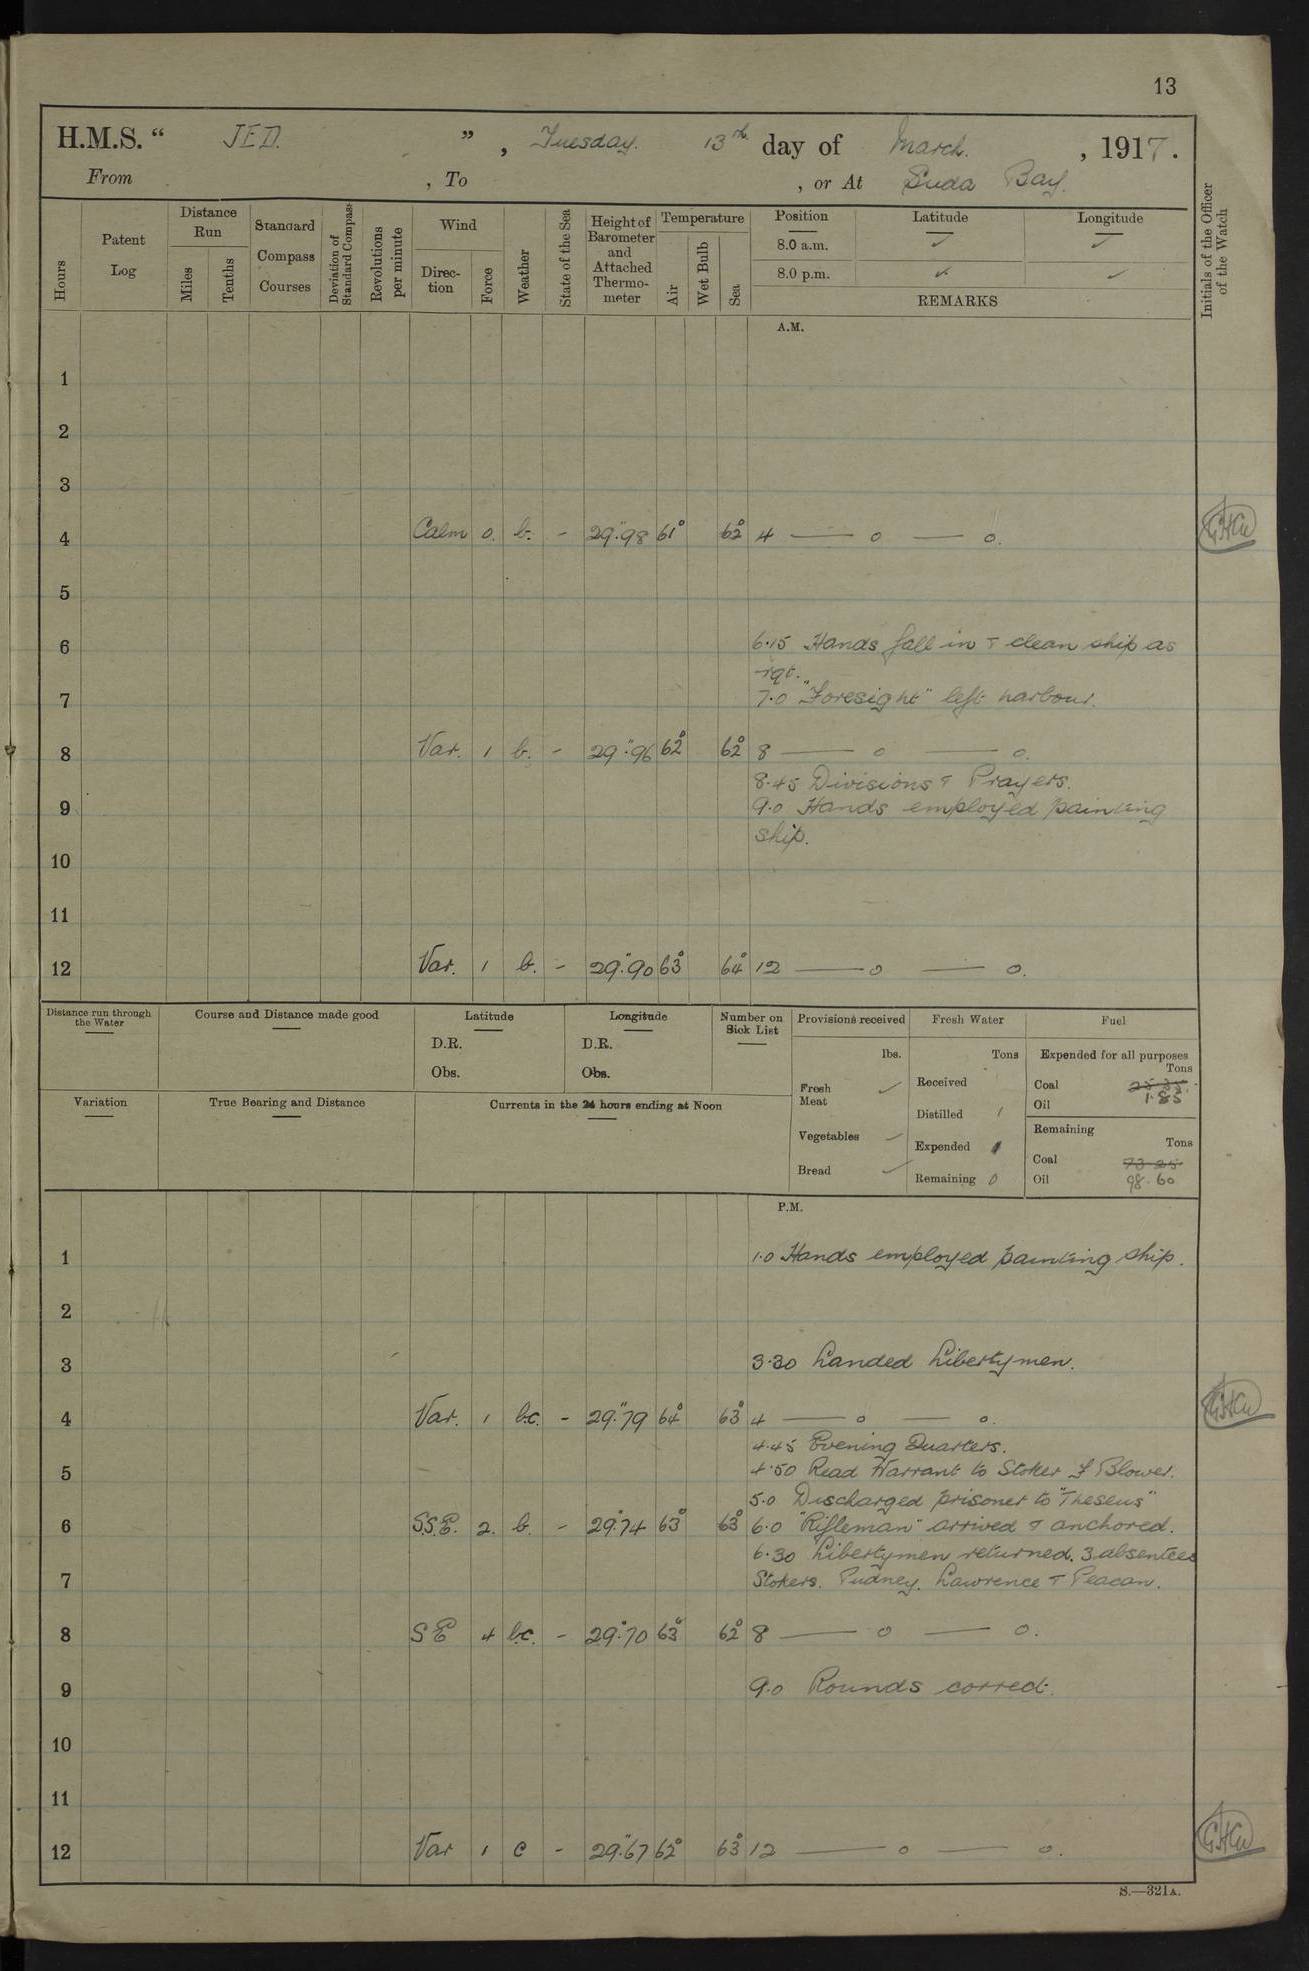 13
H.M.S. “ JED. ” , Tuesday. 13th day of March. , 1917.
From , To , or At Suda Bay.
Hours
Patent Log
Distance Run
Miles
Tenths
Standard Compass Courses
Deviation of Standard Compass
Revolutions per minute
Wind
Direction
Force
Weather
State of the Sea
Height of Barometer and Attached Thermometer
Temperature
Air
Wet Bulb
Sea
Position Latitude Longitude
8.0 a.m. ✓ ✓
8.0 p.m. ✓ ✓
REMARKS
Initials of the Officer of the Watch
A.M.
1
2
3
4 Calm 0. b. - 29."98 61° 62° 4 — o — o.
5
6 6.15 Hands fall in & clean ship as
rqt.
7 7.0 "Foresight" left harbour.
8 Var. 1 b. - 29."96 62° 62° 8 — o — o.
8.45 Divisions & Prayers.
9 9.0 Hands employed painting
ship.
10
11
12 Var. 1 b. - 29."90 63° 64° 12 — o — o.
Distance run through the Water
Course and Distance made good
Latitude
D.R.
Obs.
Longitude
D.R.
Obs.
Number on Sick List
Variation
True Bearing and Distance
Currents in the 24 hours ending at Noon
Provisions received
lbs.
Fresh Meat ✓
Vegetables ✓
Bread ✓
Fresh Water
Tons
Received
Distilled 1
Expended
Remaining 0
Fuel
Expended for all purposes
Tons
Coal 25.35.
Oil 1.85
Remaining
Tons
Coal 73.25
Oil 98.60
P.M.
1 1.0 Hands employed painting ship.
2
3 3.30 Landed Libertymen.
4 Var. 1 bc. - 29."79 64° 63° 4 — o — o.
4.45 Evening Quarters.
5 4.50 Read Warrant to Stoker F Blower.
5.0 Discharged prisoner to "Theseus"
6 S.S.E. 2. b. - 29."74 63° 63° 6.0 "Rifleman" arrived & anchored.
6.30 Libertymen returned. 3 absentees
7 Stokers. Pudney. Lawrence & Peacan.
8 SE 4 bc. - 29."70 63° 62° 8 — o — o.
9 9.0 Rounds correct.
10
11
12 Var 1 c - 29."67 62° 63° 12 — o — o.
S.—321A.